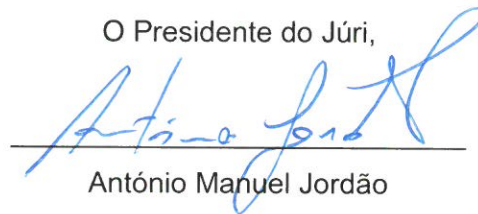 O Presidente do Júri,
António Jordão
António Manuel Jordão